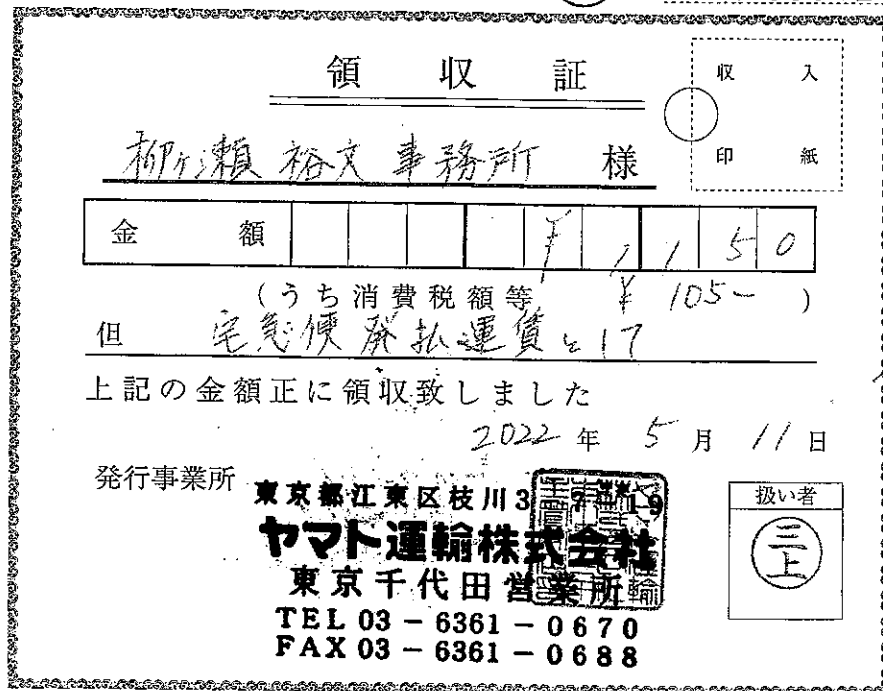 領収証
収入
印紙
柳ヶ瀬裕文事務所 様
金額 ¥1150
(うち消費税額等 ¥105- )
但 宅急便発払運賃として
上記の金額正に領収致しました
2022年5月11日
発行事業所
東京都江東区枝川3-7-19
ヤマト運輸株式会社
東京千代田営業所
TEL 03-6361-0670
FAX 03-6361-0688
扱い者
三上